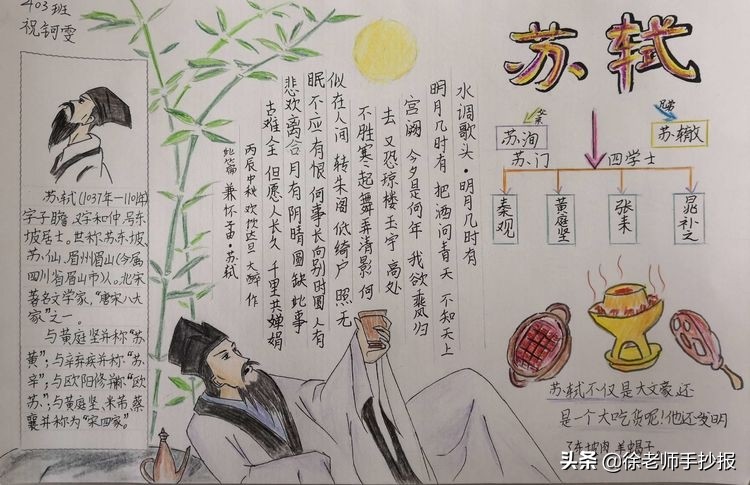 403班
祝钶雯
苏轼(1037年—1101年)
字子瞻 又字和仲,号东
坡居士。世称苏东坡、
苏仙,眉州眉山(今属
四川省眉山市)人。北宋
著名文学家,“唐宋八大
家”之一。
与黄庭坚并称“苏
黄”;与辛弃疾并称“苏
辛”;与欧阳修并称“欧
苏”;与黄庭坚、米芾、蔡
襄并称为“宋四家”。
水调歌头·明月几时有
明月几时有 把酒问青天 不知天上
宫阙 今夕是何年 我欲乘风归
去 又恐琼楼玉宇 高处
不胜寒 起舞弄清影 何
似在人间 转朱阁 低绮户 照无
眠 不应有恨 何事长向别时圆 人有
悲欢离合 月有阴晴圆缺 此事
古难全 但愿人长久 千里共婵娟
丙辰中秋 欢饮达旦 大醉 作
此篇 兼怀子由·苏轼
苏轼
兄弟
苏洵
苏辙
苏门 四学士
秦观
黄庭坚
张耒
晁补之
苏轼不仅是大文豪,还
是一个大吃货呢!他还发明
了东坡肉 羊蝎子
头条 @徐老师手抄报